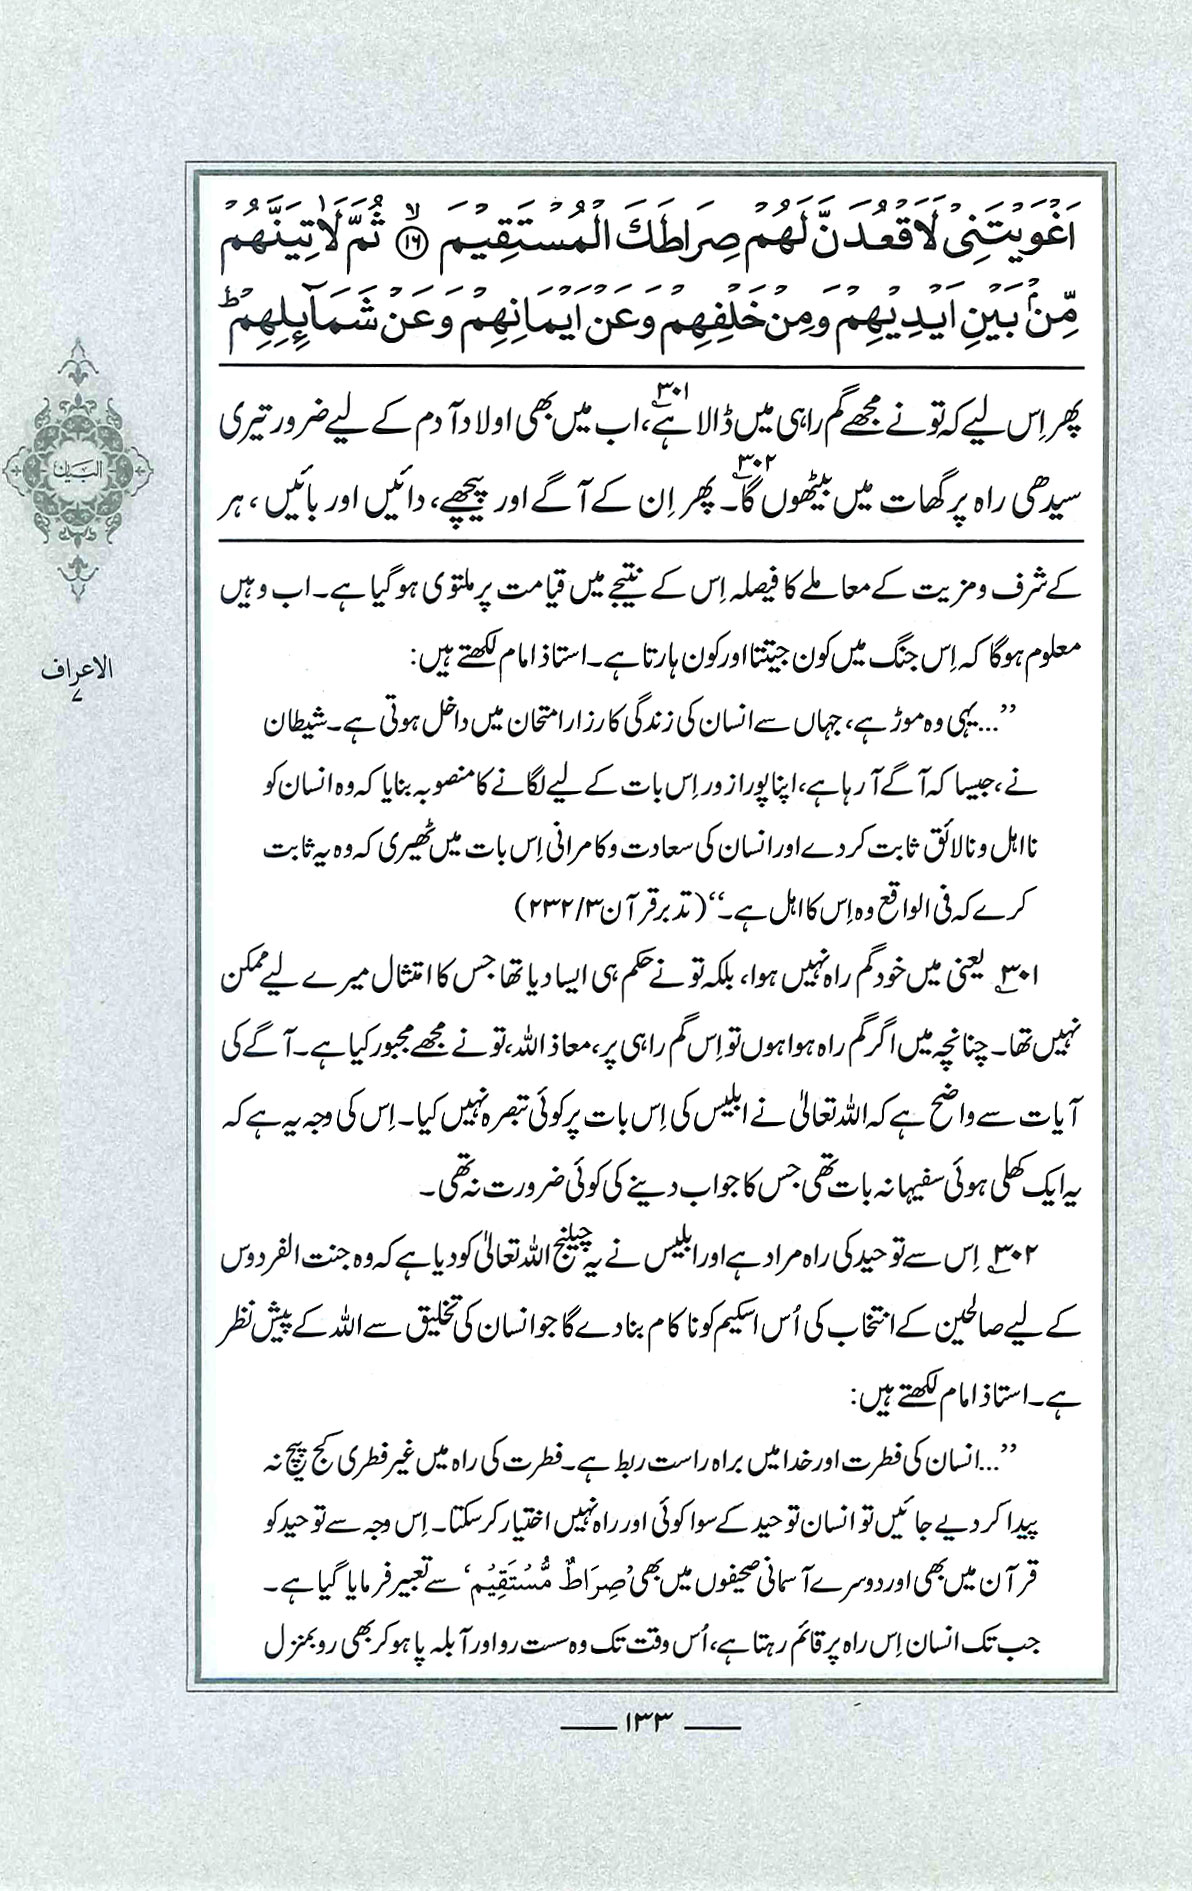 اَغْوَيْتَنِیْ لَاَقْعُدَنَّ لَهُمْ صِرَاطَكَ الْمُسْتَقِيْمَ ﴿۱۶﴾ۙ ثُمَّ لَاٰتِيَنَّهُمْ
مِّنْۢ بَيْنِ اَيْدِيْهِمْ وَمِنْ خَلْفِهِمْ وَعَنْ اَيْمَانِهِمْ وَعَنْ شَمَآئِلِهِمْ ؕ
پھر اِس لیے کہ تو نے مجھے گم راہی میں ڈالا ہے،۳۰۱ اب میں بھی اولاد آدم کے لیے ضرور تیری
سیدھی راہ پر گھات میں بیٹھوں گا۔۳۰۲ پھر اِن کے آگے اور پیچھے، دائیں اور بائیں، ہر
البیان
الاعراف
۷
کے شرف و مزیت کے معاملے کا فیصلہ اِس کے نتیجے میں قیامت پر ملتوی ہو گیا ہے۔ اب وہیں
معلوم ہوگا کہ اِس جنگ میں کون جیتتا اور کون ہارتا ہے۔ استاذ امام لکھتے ہیں:
’’...یہی وہ موڑ ہے، جہاں سے انسان کی زندگی کارزار امتحان میں داخل ہوتی ہے۔ شیطان
نے، جیسا کہ آگے آ رہا ہے، اپنا پورا زور اِس بات کے لیے لگانے کا منصوبہ بنایا کہ وہ انسان کو
نااہل و نالائق ثابت کر دے اور انسان کی سعادت و کامرانی اِس بات میں ٹھیری کہ وہ یہ ثابت
کرے کہ فی الواقع وہ اِس کا اہل ہے۔‘‘ (تدبر قرآن ۳/ ۲۳۲)
۳۰۱؎ یعنی میں خود گم راہ نہیں ہوا، بلکہ تو نے حکم ہی ایسا دیا تھا جس کا امتثال میرے لیے ممکن
نہیں تھا۔ چنانچہ میں اگر گم راہ ہوا ہوں تو اِس گم راہی پر، معاذ اللہ، تو نے مجھے مجبور کیا ہے۔ آگے کی
آیات سے واضح ہے کہ اللہ تعالیٰ نے ابلیس کی اِس بات پر کوئی تبصرہ نہیں کیا۔ اِس کی وجہ یہ ہے کہ
یہ ایک کھلی ہوئی سفیہانہ بات تھی جس کا جواب دینے کی کوئی ضرورت نہ تھی۔
۳۰۲؎ اِس سے توحید کی راہ مراد ہے اور ابلیس نے یہ چیلنج اللہ تعالیٰ کو دیا ہے کہ وہ جنت الفردوس
کے لیے صالحین کے انتخاب کی اُس اسکیم کو ناکام بنا دے گا جو انسان کی تخلیق سے اللہ کے پیش نظر
ہے۔ استاذ امام لکھتے ہیں:
’’...انسان کی فطرت اور خدا میں براہ راست ربط ہے۔ فطرت کی راہ میں غیر فطری کج پیچ نہ
پیدا کر دیے جائیں تو انسان توحید کے سوا کوئی اور راہ نہیں اختیار کر سکتا۔ اِس وجہ سے توحید کو
قرآن میں بھی اور دوسرے آسمانی صحیفوں میں بھی ’صِرَاطٌ مُّسْتَقِيْم‘ سے تعبیر فرمایا گیا ہے۔
جب تک انسان اِس راہ پر قائم رہتا ہے، اُس وقت تک وہ سست رو اور آبلہ پا ہو کر بھی رو بمنزل
۱۳۳